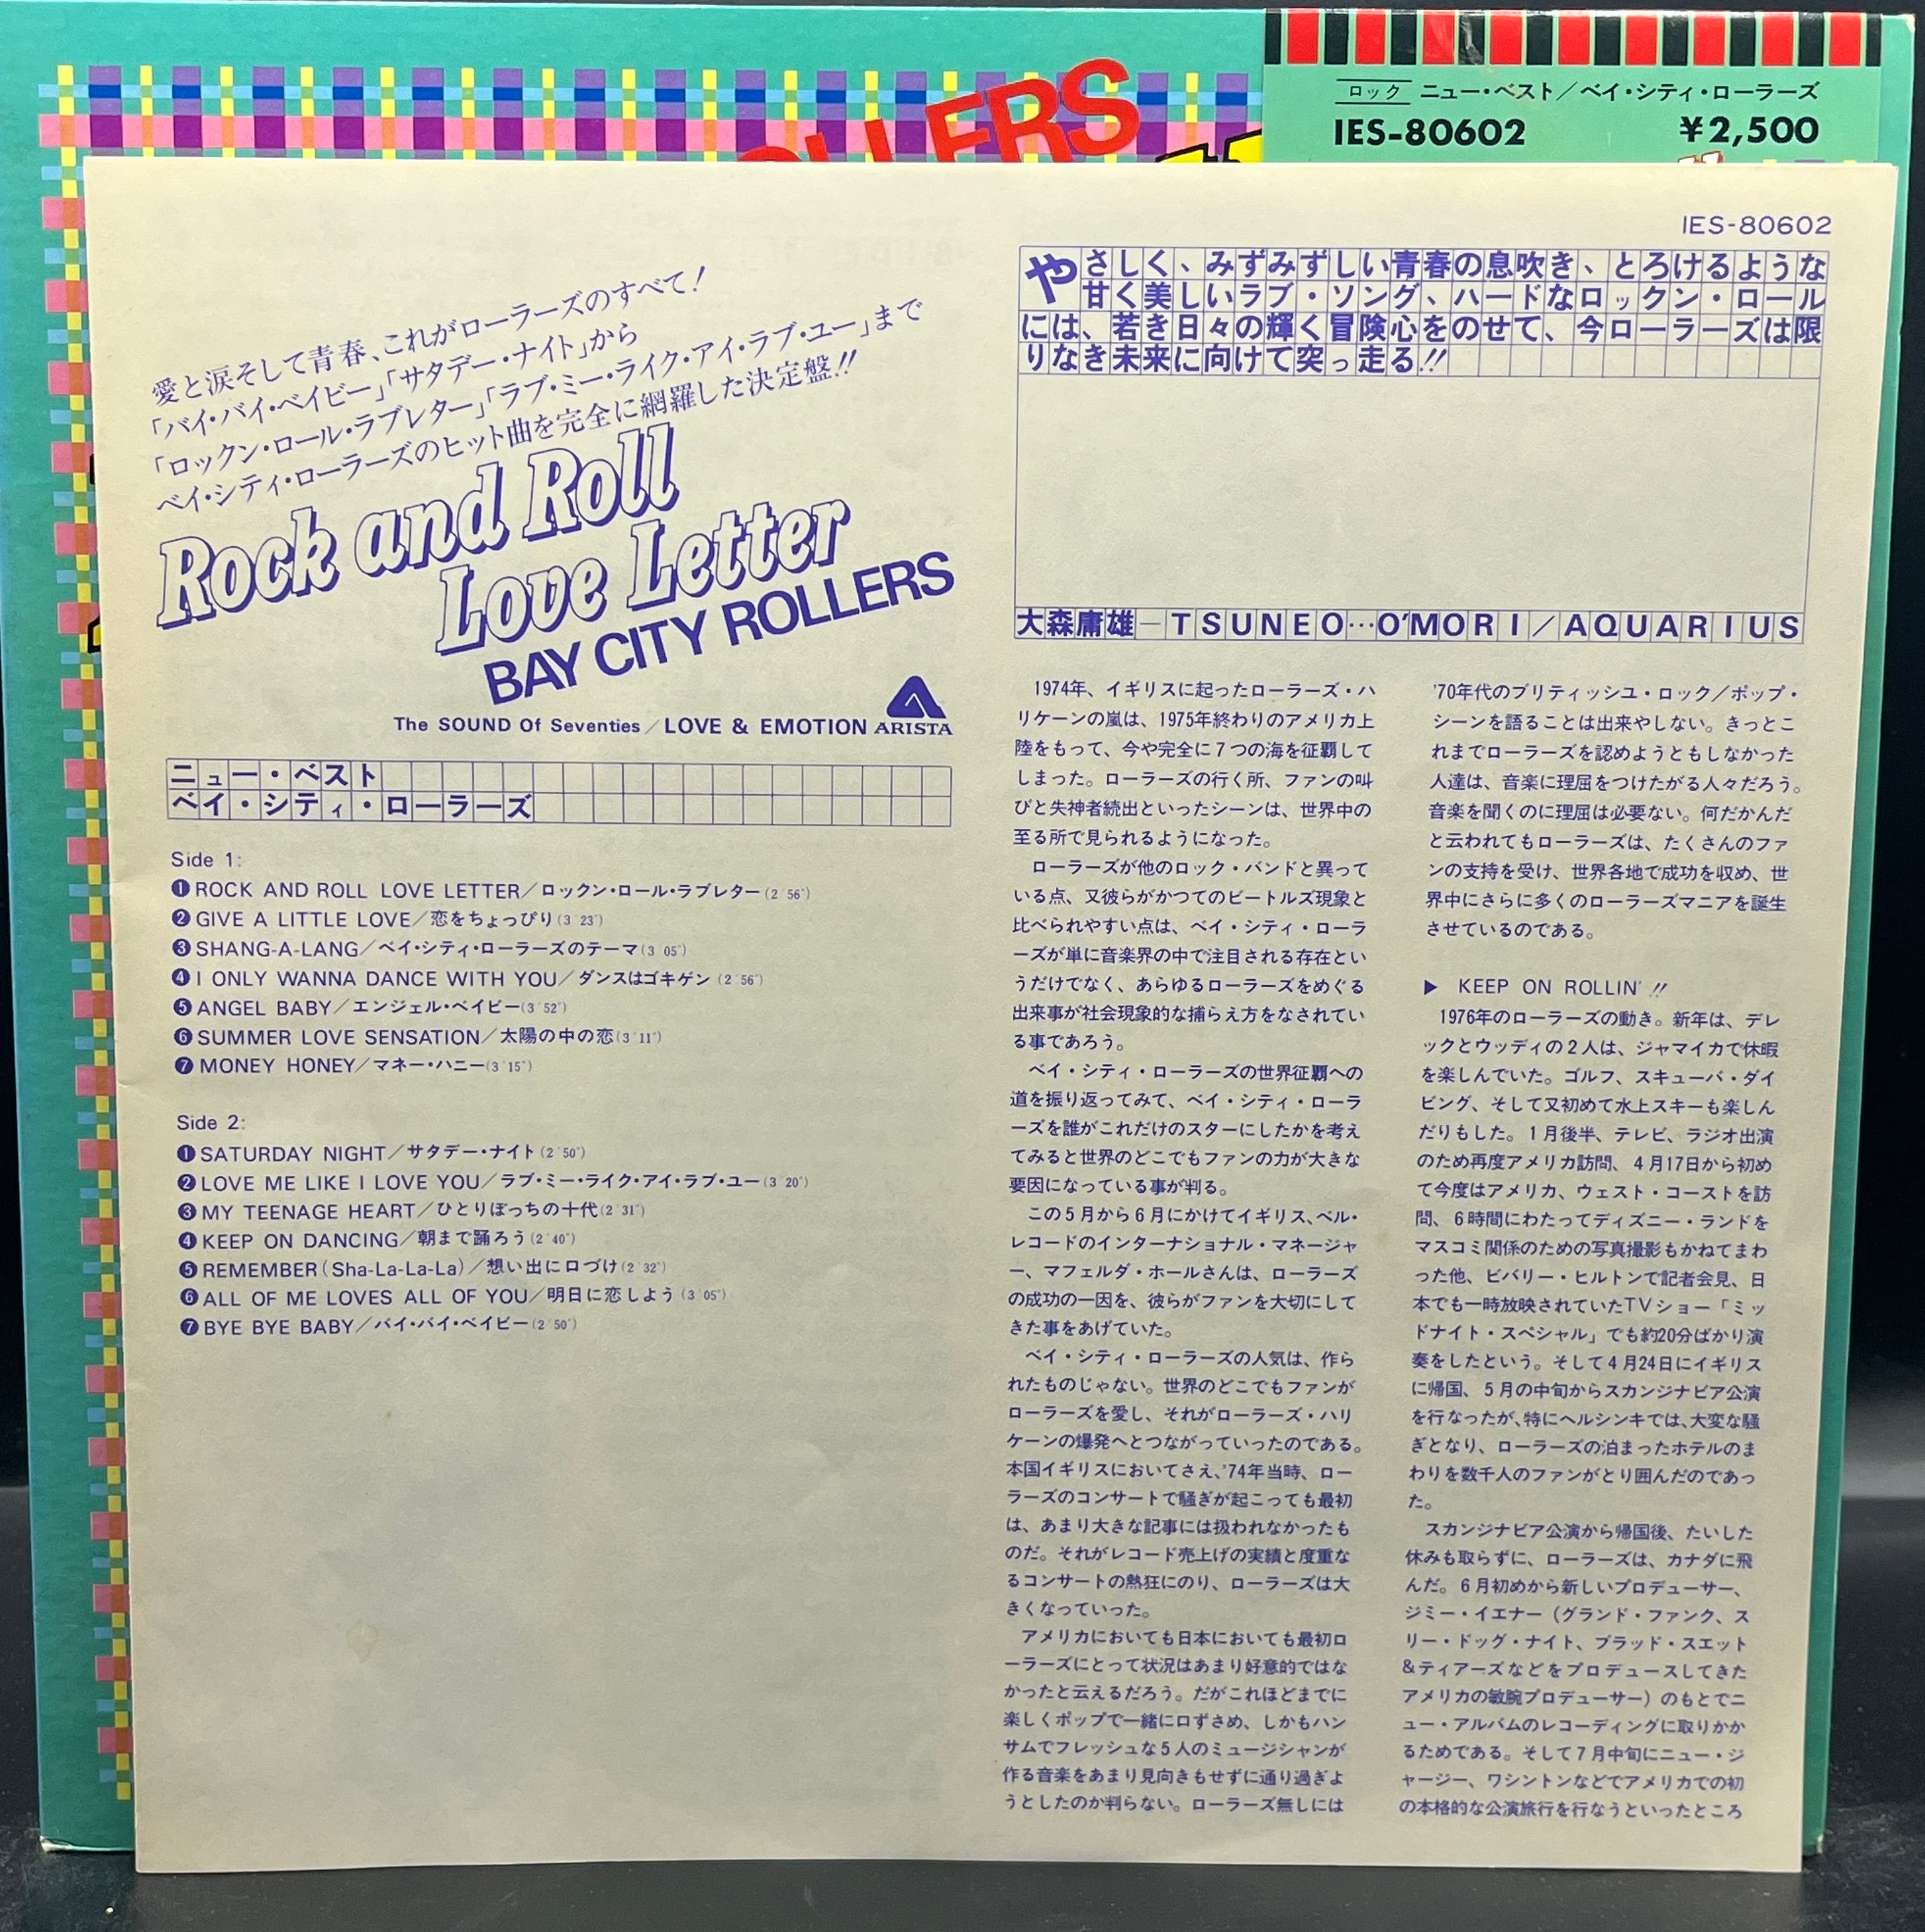 ROLLERS
ロック ニュー・ベスト／ベイ・シティ・ローラーズ
IES-80602 ¥2,500
IES-80602
愛と涙そして青春、これがローラーズのすべて!
「バイ・バイ・ベイビー」「サタデー・ナイト」から
「ロックン・ロール・ラブレター」「ラブ・ミー・ライク・アイ・ラブ・ユー」まで
ベイ・シティ・ローラーズのヒット曲を完全に網羅した決定盤!!
Rock and Roll
Love Letter
BAY CITY ROLLERS
The SOUND Of Seventies／LOVE & EMOTION ARISTA
ニュー・ベスト
ベイ・シティ・ローラーズ
Side 1:
❶ROCK AND ROLL LOVE LETTER／ロックン・ロール・ラブレター(2′56″)
❷GIVE A LITTLE LOVE／恋をちょっぴり(3′23″)
❸SHANG-A-LANG／ベイ・シティ・ローラーズのテーマ(3′05″)
❹I ONLY WANNA DANCE WITH YOU／ダンスはゴキゲン(2′56″)
❺ANGEL BABY／エンジェル・ベイビー(3′52″)
❻SUMMER LOVE SENSATION／太陽の中の恋(3′11″)
❼MONEY HONEY／マネー・ハニー(3′15″)
Side 2:
❶SATURDAY NIGHT／サタデー・ナイト(2′50″)
❷LOVE ME LIKE I LOVE YOU／ラブ・ミー・ライク・アイ・ラブ・ユー(3′20″)
❸MY TEENAGE HEART／ひとりぼっちの十代(2′31″)
❹KEEP ON DANCING／朝まで踊ろう(2′40″)
❺REMEMBER(Sha-La-La-La)／想い出に口づけ(2′32″)
❻ALL OF ME LOVES ALL OF YOU／明日に恋しよう(3′05″)
❼BYE BYE BABY／バイ・バイ・ベイビー(2′50″)
やさしく、みずみずしい青春の息吹き、とろけるような
甘く美しいラブ・ソング、ハードなロックン・ロール
には、若き日々の輝く冒険心をのせて、今ローラーズは限
りなき未来に向けて突っ走る!!
大森庸雄—TSUNEO…O'MORI／AQUARIUS
1974年、イギリスに起ったローラーズ・ハ
リケーンの嵐は、1975年終わりのアメリカ上
陸をもって、今や完全に7つの海を征覇して
しまった。ローラーズの行く所、ファンの叫
びと失神者続出といったシーンは、世界中の
至る所で見られるようになった。
ローラーズが他のロック・バンドと異って
いる点、又彼らがかつてのビートルズ現象と
比べられやすい点は、ベイ・シティ・ローラ
ーズが単に音楽界の中で注目される存在とい
うだけでなく、あらゆるローラーズをめぐる
出来事が社会現象的な捕らえ方をなされてい
る事であろう。
ベイ・シティ・ローラーズの世界征覇への
道を振り返ってみて、ベイ・シティ・ローラ
ーズを誰がこれだけのスターにしたかを考え
てみると世界のどこでもファンの力が大きな
要因になっている事が判る。
この5月から6月にかけてイギリス、ベル・
レコードのインターナショナル・マネージャ
ー、マフェルダ・ホールさんは、ローラーズ
の成功の一因を、彼らがファンを大切にして
きた事をあげていた。
ベイ・シティ・ローラーズの人気は、作ら
れたものじゃない。世界のどこでもファンが
ローラーズを愛し、それがローラーズ・ハリ
ケーンの爆発へとつながっていったのである。
本国イギリスにおいてさえ、'74年当時、ロー
ラーズのコンサートで騒ぎが起こっても最初
は、あまり大きな記事には扱われなかったも
のだ。それがレコード売上げの実績と度重な
るコンサートの熱狂にのり、ローラーズは大
きくなっていった。
アメリカにおいても日本においても最初ロ
ーラーズにとって状況はあまり好意的ではな
かったと云えるだろう。だがこれほどまでに
楽しくポップで一緒に口ずさめ、しかもハン
サムでフレッシュな5人のミュージシャンが
作る音楽をあまり見向きもせずに通り過ぎよ
うとしたのか判らない。ローラーズ無しには
'70年代のブリティッシュ・ロック／ポップ・
シーンを語ることは出来やしない。きっとこ
れまでローラーズを認めようともしなかった
人達は、音楽に理屈をつけたがる人々だろう。
音楽を聞くのに理屈は必要ない。何だかんだ
と云われてもローラーズは、たくさんのファ
ンの支持を受け、世界各地で成功を収め、世
界中にさらに多くのローラーズマニアを誕生
させているのである。
▶ KEEP ON ROLLIN' !!
1976年のローラーズの動き。新年は、デレ
ックとウッディの2人は、ジャマイカで休暇
を楽しんでいた。ゴルフ、スキューバ・ダイ
ビング、そして又初めて水上スキーも楽しん
だりもした。1月後半、テレビ、ラジオ出演
のため再度アメリカ訪問、4月17日から初め
て今度はアメリカ、ウェスト・コーストを訪
問、6時間にわたってディズニー・ランドを
マスコミ関係のための写真撮影もかねてまわ
った他、ビバリー・ヒルトンで記者会見、日
本でも一時放映されていたTVショー「ミッ
ドナイト・スペシャル」でも約20分ばかり演
奏をしたという。そして4月24日にイギリス
に帰国、5月の中旬からスカンジナビア公演
を行なったが、特にヘルシンキでは、大変な騒
ぎとなり、ローラーズの泊まったホテルのま
わりを数千人のファンがとり囲んだのであっ
た。
スカンジナビア公演から帰国後、たいした
休みも取らずに、ローラーズは、カナダに飛
んだ。6月初めから新しいプロデューサー、
ジミー・イエナー（グランド・ファンク、ス
リー・ドッグ・ナイト、ブラッド・スエット
&ティアーズなどをプロデュースしてきた
アメリカの敏腕プロデューサー）のもとでニ
ュー・アルバムのレコーディングに取りかか
るためである。そして7月中旬にニュー・ジ
ャージー、ワシントンなどでアメリカでの初
の本格的な公演旅行を行なうといったところ